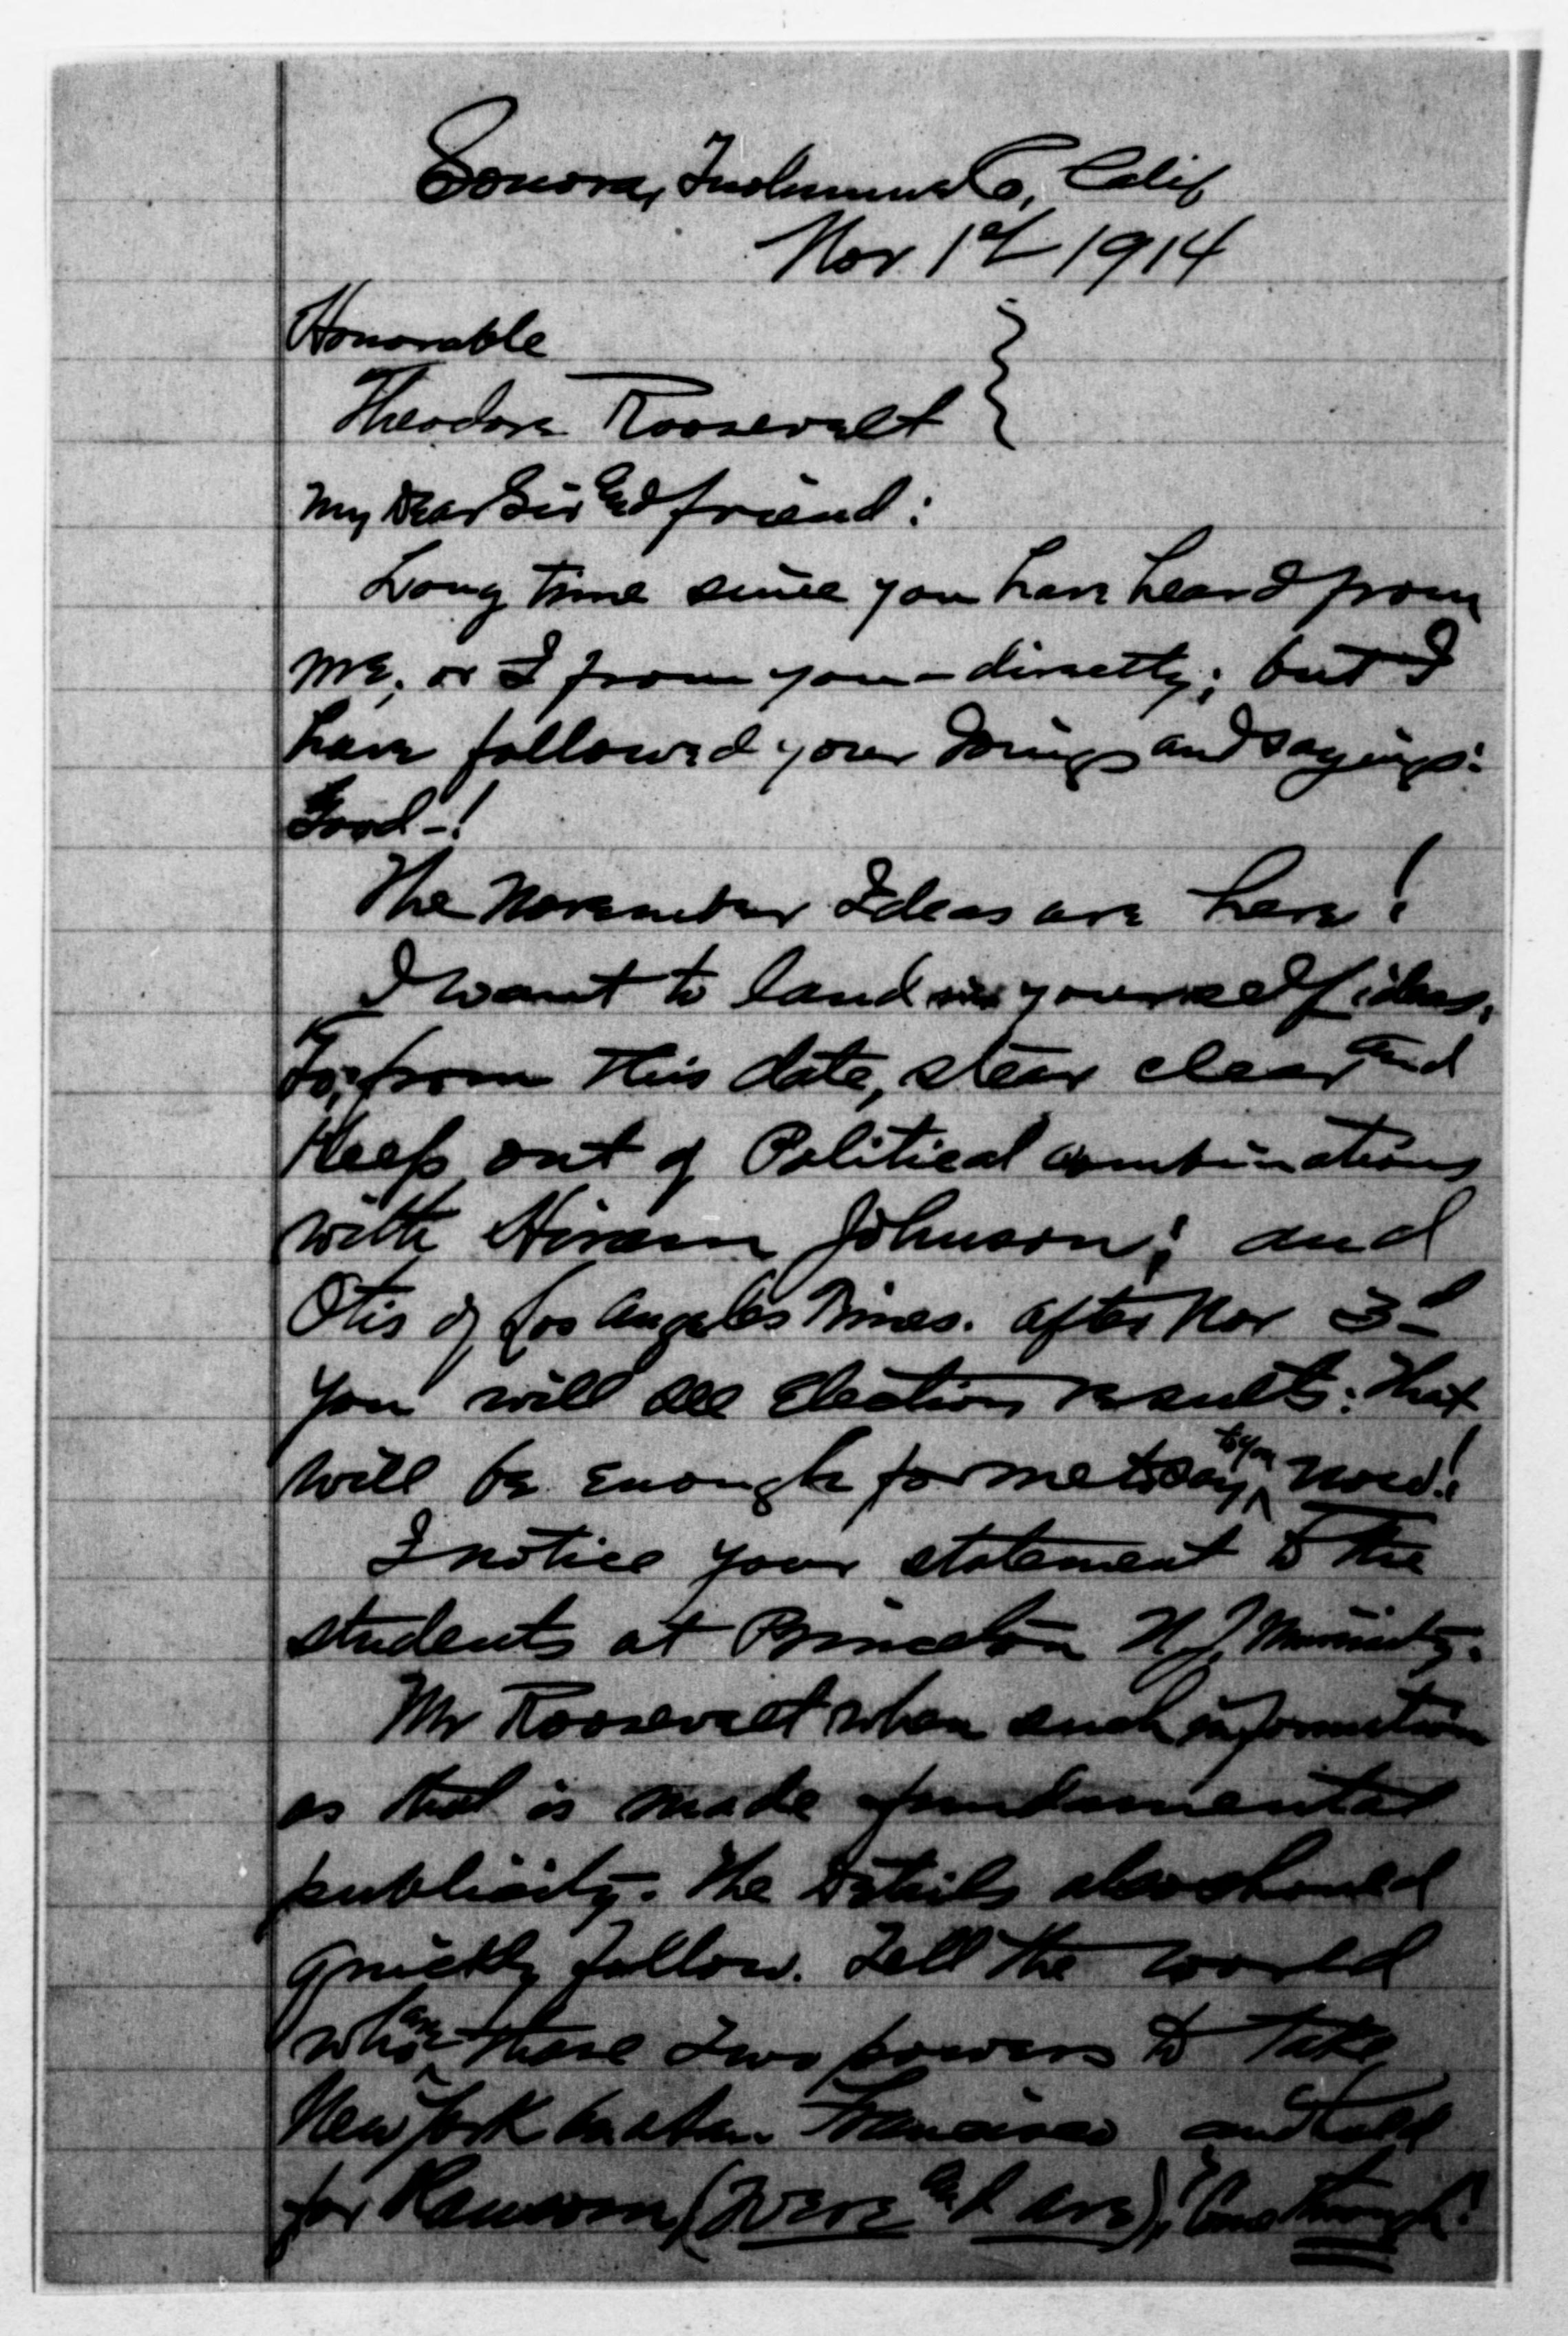 Sonora, Tuolumne Co, Calif
Nov 1st 1914
Honorable
Theodore Roosevelt
My Dear Sir and friend:
Long time since you have heard from
me, or I from you - directly; but I
have followed your doings and sayings:
Good-!
The November Ideas are here!
I want to land yourself ideas,
To, from this date, stear clear and
Keep out of Political combinations
with Hiram Johnson; and
Otis of Los Angeles Times. after Nov 3d
you will see Election results: that
will be enough for me to say to you now!
I notice your statement to the
students at Princeton N.J.
Mr Roosevelt when such information
as that is made fundamental
publicity. The Details also should
quickly follow. Tell the world
who are those two powers to take
New York San Francisco and hold
for Ransom, (were and are), Come through!